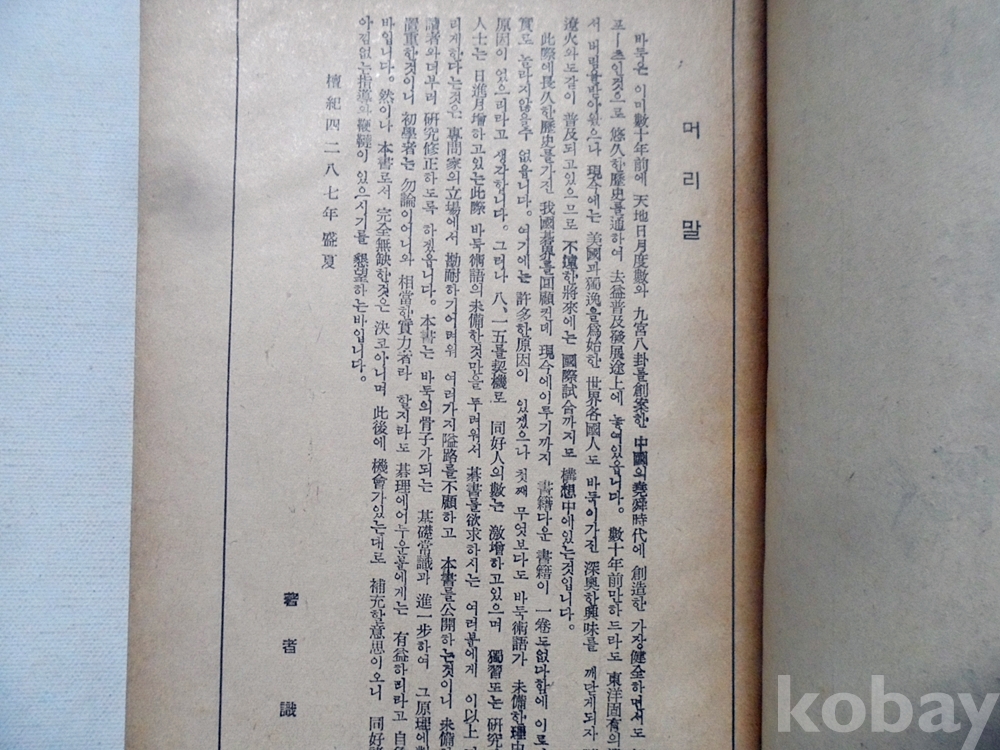 머리말
바둑은 이미數十年前에 天地日月度數와 九宮八卦를創案한 中國의堯舜時代에 創造한 가장健全하면서도
포ー츠인것으로 悠久한歷史를通하여 去益普及發展途上에 놓여있읍니다。數十年前만하드라도 東洋固有의
서 버림을받아왔으나 現今에는 美國과獨逸을爲始한 世界各國人도 바둑이가진 深奧한興味를 깨닫게되자
遼火와도같이 普及되고있으므로 不遠한將來에는 國際試合까지도 構想中에있는것입니다。
此際에長久한歷史를가진 我國碁界를回顧컨데 現今에이루기까지 書籍다운 書籍이 一卷도없다함에 이로
實로 놀라지않을수 없읍니다。여기에는 許多한原因이 있겠으나 첫째 무엇보다도 바둑術語가 未備한理由
原因이 있으리라고 생각합니다。그러나 八、一五를契機로 同好人의數는 激增하고있으며 獨習또는 硏究
人士는 日進月增하고있는此際 바둑術語의未備한것만을 두려워서 碁書를欲求하시는 여러분에게 이以上
리게한다는것은 專門家의立場에서 勘耐하기어려워 여러가지隘路를不顧하고 本書를公開하는것이니 未備
讀者와더부러 硏究修正하도록 하겠읍니다。本書는 바둑의骨子가되는 基礎常識과 進一步하여 그原理에
置重한것이니 初學者는 勿論이어니와 相當한實力者라 할지라도 碁理에어두운분에게는 有益하리라고
바입니다。然이나 本書로서 完全無缺한것은 決코아니며 此後에 機會가있는대로 補充할意思이오니 同好
아낌없는指導와鞭撻이 있으시기를 懇望하는바입니다。
檀紀四二八七年盛夏
著者識
kobay